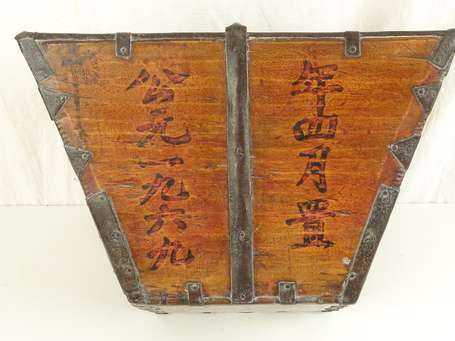 公元一九六九
年四月置